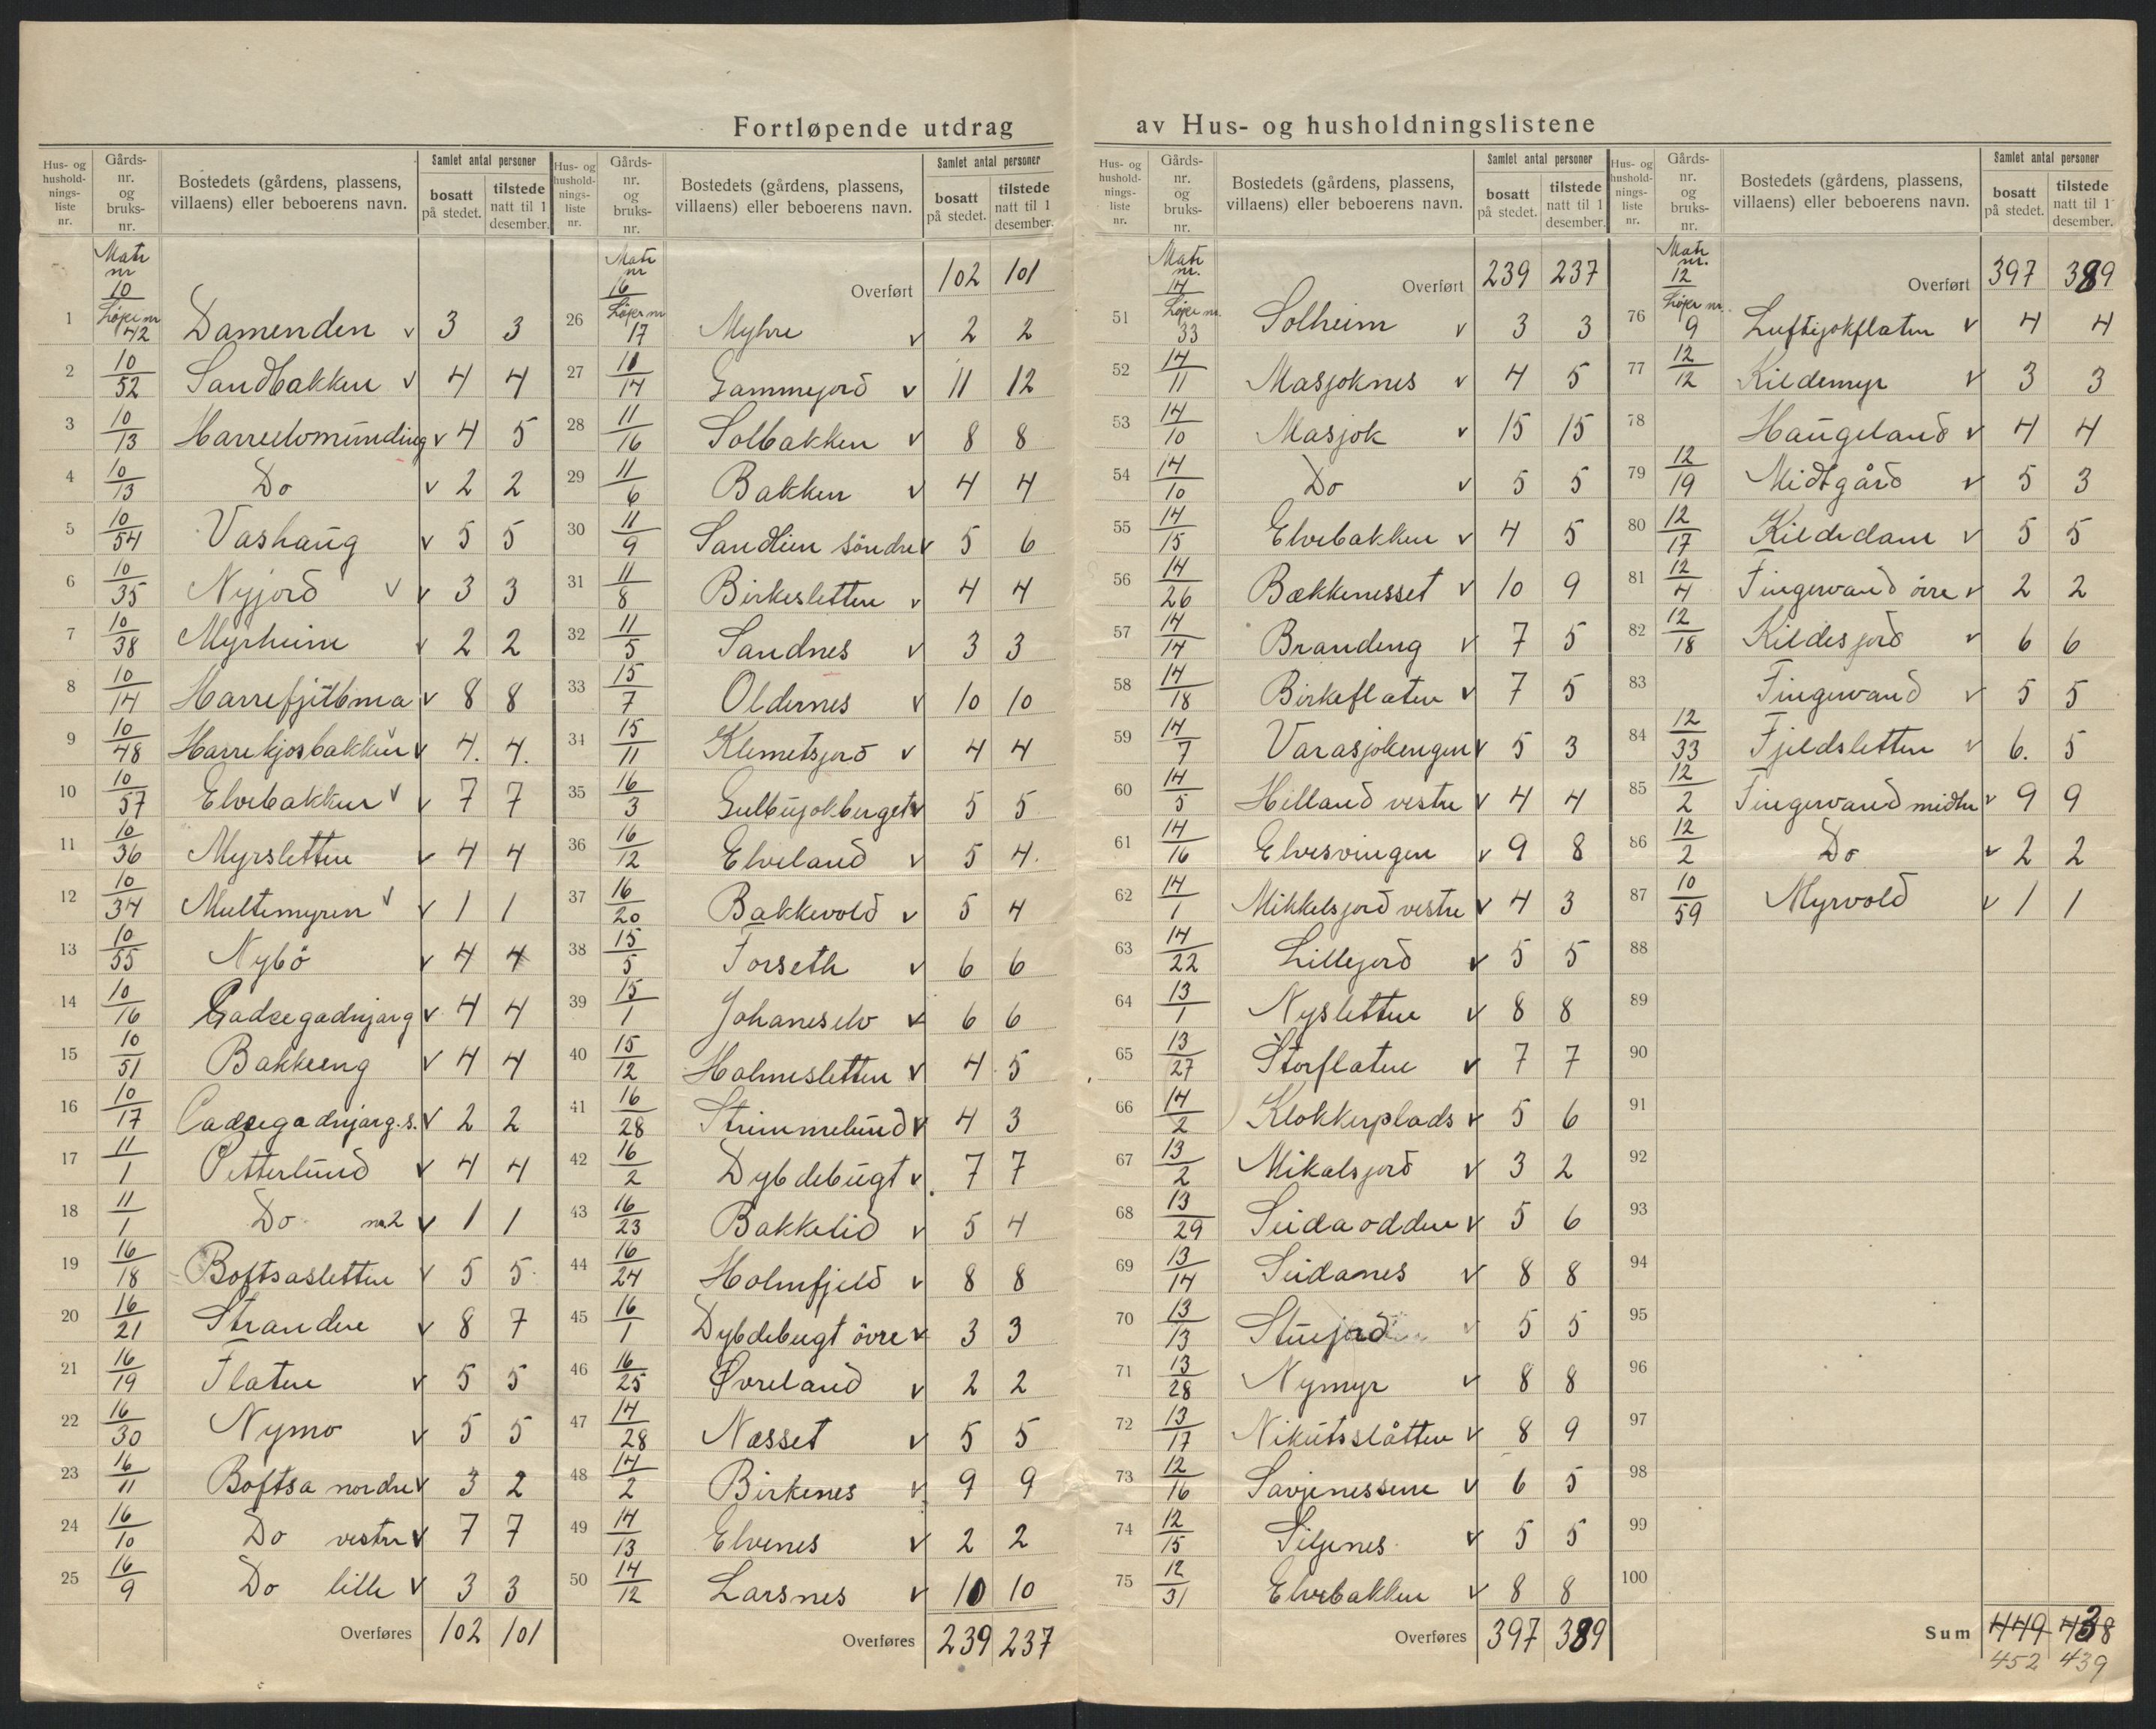 Fortløpende utdrag av Hus- og husholdningslistene
Hus- og husholdnings-liste nr. | Gårds-nr. og bruks-nr. | Bostedets (gårdens, plassens, villaens) eller beboerens navn. | Samlet antal personer | bosatt på stedet. | tilstede natt til 1 desember.
Matr nr 10 Løpe nr
1 10/42 Damenden v 3 3
2 10/52 Sandbakken v 4 4
3 10/13 Harrelvmunding v 4 5
4 10/13 Do v 2 2
5 10/54 Vashaug v 5 5
6 10/35 Nyjord v v 3 3
7 10/38 Myrheim v 2 2
8 10/14 Harrefjitbma v 8 8
9 10/48 Harrekjosbakken v 4. 4.
10 10/57 Elvebakken v v 7 7
11 10/36 Myrsletten v 4 4
12 10/34 Multemyren v v 1 1
13 10/55 Nybö v 4 4
14 10/16 Gadzegadnjarg v 4 4
15 10/51 Bakkeeng v 4 4
16 10/17 Cadzegadnjarg. s. v 2 2
17 11/1 Petterlund v 4 4
18 11/1 Do nr. 2 v 1 1
19 16/18 Boftsasletten v 5 5
20 16/21 Stranden v 8 7
21 16/19 Flaten v 5 5
22 16/30 Nymo v 5 5
23 16/11 Boftsa nordre v 3 2
24 16/10 Do vestre v 7 7
25 16/9 Do lille v 3 3
Overføres 102 101
Hus- og husholdnings-liste nr. | Gårds-nr. og bruks-nr. | Bostedets (gårdens, plassens, villaens) eller beboerens navn. | Samlet antal personer | bosatt på stedet. | tilstede natt til 1 desember.
Matr nr 16 Løpe nr
Overført 102 101
26 16/17 Myhre v 2 2
27 11/14 Gammejord v 11 12
28 11/16 Solbakken v 8 8
29 11/6 Bakken v 4 4
30 11/9 Sandlien søndre v 5 6
31 11/8 Birkesletten v 4 4
32 11/5 Sandnes v 3 3
33 15/7 Oldernes v 10 10
34 15/11 Klemetsjord v 4 4
35 16/3 Gulbujokberget v 5 5
36 16/12 Elveland v 5 4.
37 16/20 Bakkevold v 5 4
38 15/5 Forseth v 6 6
39 15/1 Johaneselv v 6 6
40 15/12 Holmesletten v 4 5
41 16/28 Strimmelund v 4 3
42 16/2 Dybdebugt v 7 7
43 16/23 Bakkelid v 5 4
44 16/24 Holmfjeld v 8 8
45 16/1 Dybdebugt övre v 3 3
46 16/25 Øvreland v 2 2
47 14/28 Næsset v 5 5
48 14/2 Birkenes v 9 9
49 14/13 Elvenes v 2 2
50 14/12 Larsnes v 10 10
Overføres 239 237
Hus- og husholdnings-liste nr. | Gårds-nr. og bruks-nr. | Bostedets (gårdens, plassens, villaens) eller beboerens navn. | Samlet antal personer | bosatt på stedet. | tilstede natt til 1 desember.
Matr nr. 14 Løpe nr.
Overført 239 237
51 14/33 Solheim v 3 3
52 14/11 Masjoknes v 4 5
53 14/10 Masjok v 15 15
54 14/10 Do v 5 5
55 14/15 Elvebakken v 4 5
56 14/26 Bækkenesset v 10 9
57 14/14 Brandeng v 7 5
58 14/18 Birkeflaten v 7 5
59 14/7 Varasjokengen v 5 3
60 14/5 Hilland vestre v 4 4
61 14/16 Elvesvingen v 9 8
62 14/1 Mikkelsjord vestre v 4 3
63 14/22 Lillejord v 5 5
64 13/1 Nysletten v 8 8
65 13/27 Storflaten v 7 7
66 14/2 Klokkerplads v 5 6
67 13/2 Mikalsjord v 3 2
68 13/29 Seidaodden v 5 6
69 13/14 Seidanes v 8 8
70 13/13 Stuejord v 5 5
71 13/28 Nymyr v 8 8
72 13/17 Nikutsslåtten v 8 9
73 12/16 Savjenessene v 6 5
74 12/15 Siljenes v 5 5
75 12/31 Elvebakken v 8 8
Overføres 397 389
Hus- og husholdnings-liste nr. | Gårds-nr. og bruks-nr. | Bostedets (gårdens, plassens, villaens) eller beboerens navn. | Samlet antal personer | bosatt på stedet. | tilstede natt til 1 desember.
Matr nr. 12 Løpe nr.
Overført 397 389
76 12/9 Luftijokflaten v 4 4
77 12/12 Kildemyr v 3 3
78 Haugeland v 4 4
79 12/19 Midtgård v 5 3
80 12/17 Kildedam v 5 5
81 12/4 Fingervand övre v 2 2
82 12/18 Kildesjord v 6 6
83 Fingervand v 5 5
84 12/33 Fjeldsletten v 6. 5
85 12/2 Fingervand midtre v 9 9
86 12/2 Do v 2 2
87 10/59 Myrvold v 1 1
88
89
90
91
92
93
94
95
96
97
98
99
100
Sum 449 438
452 439